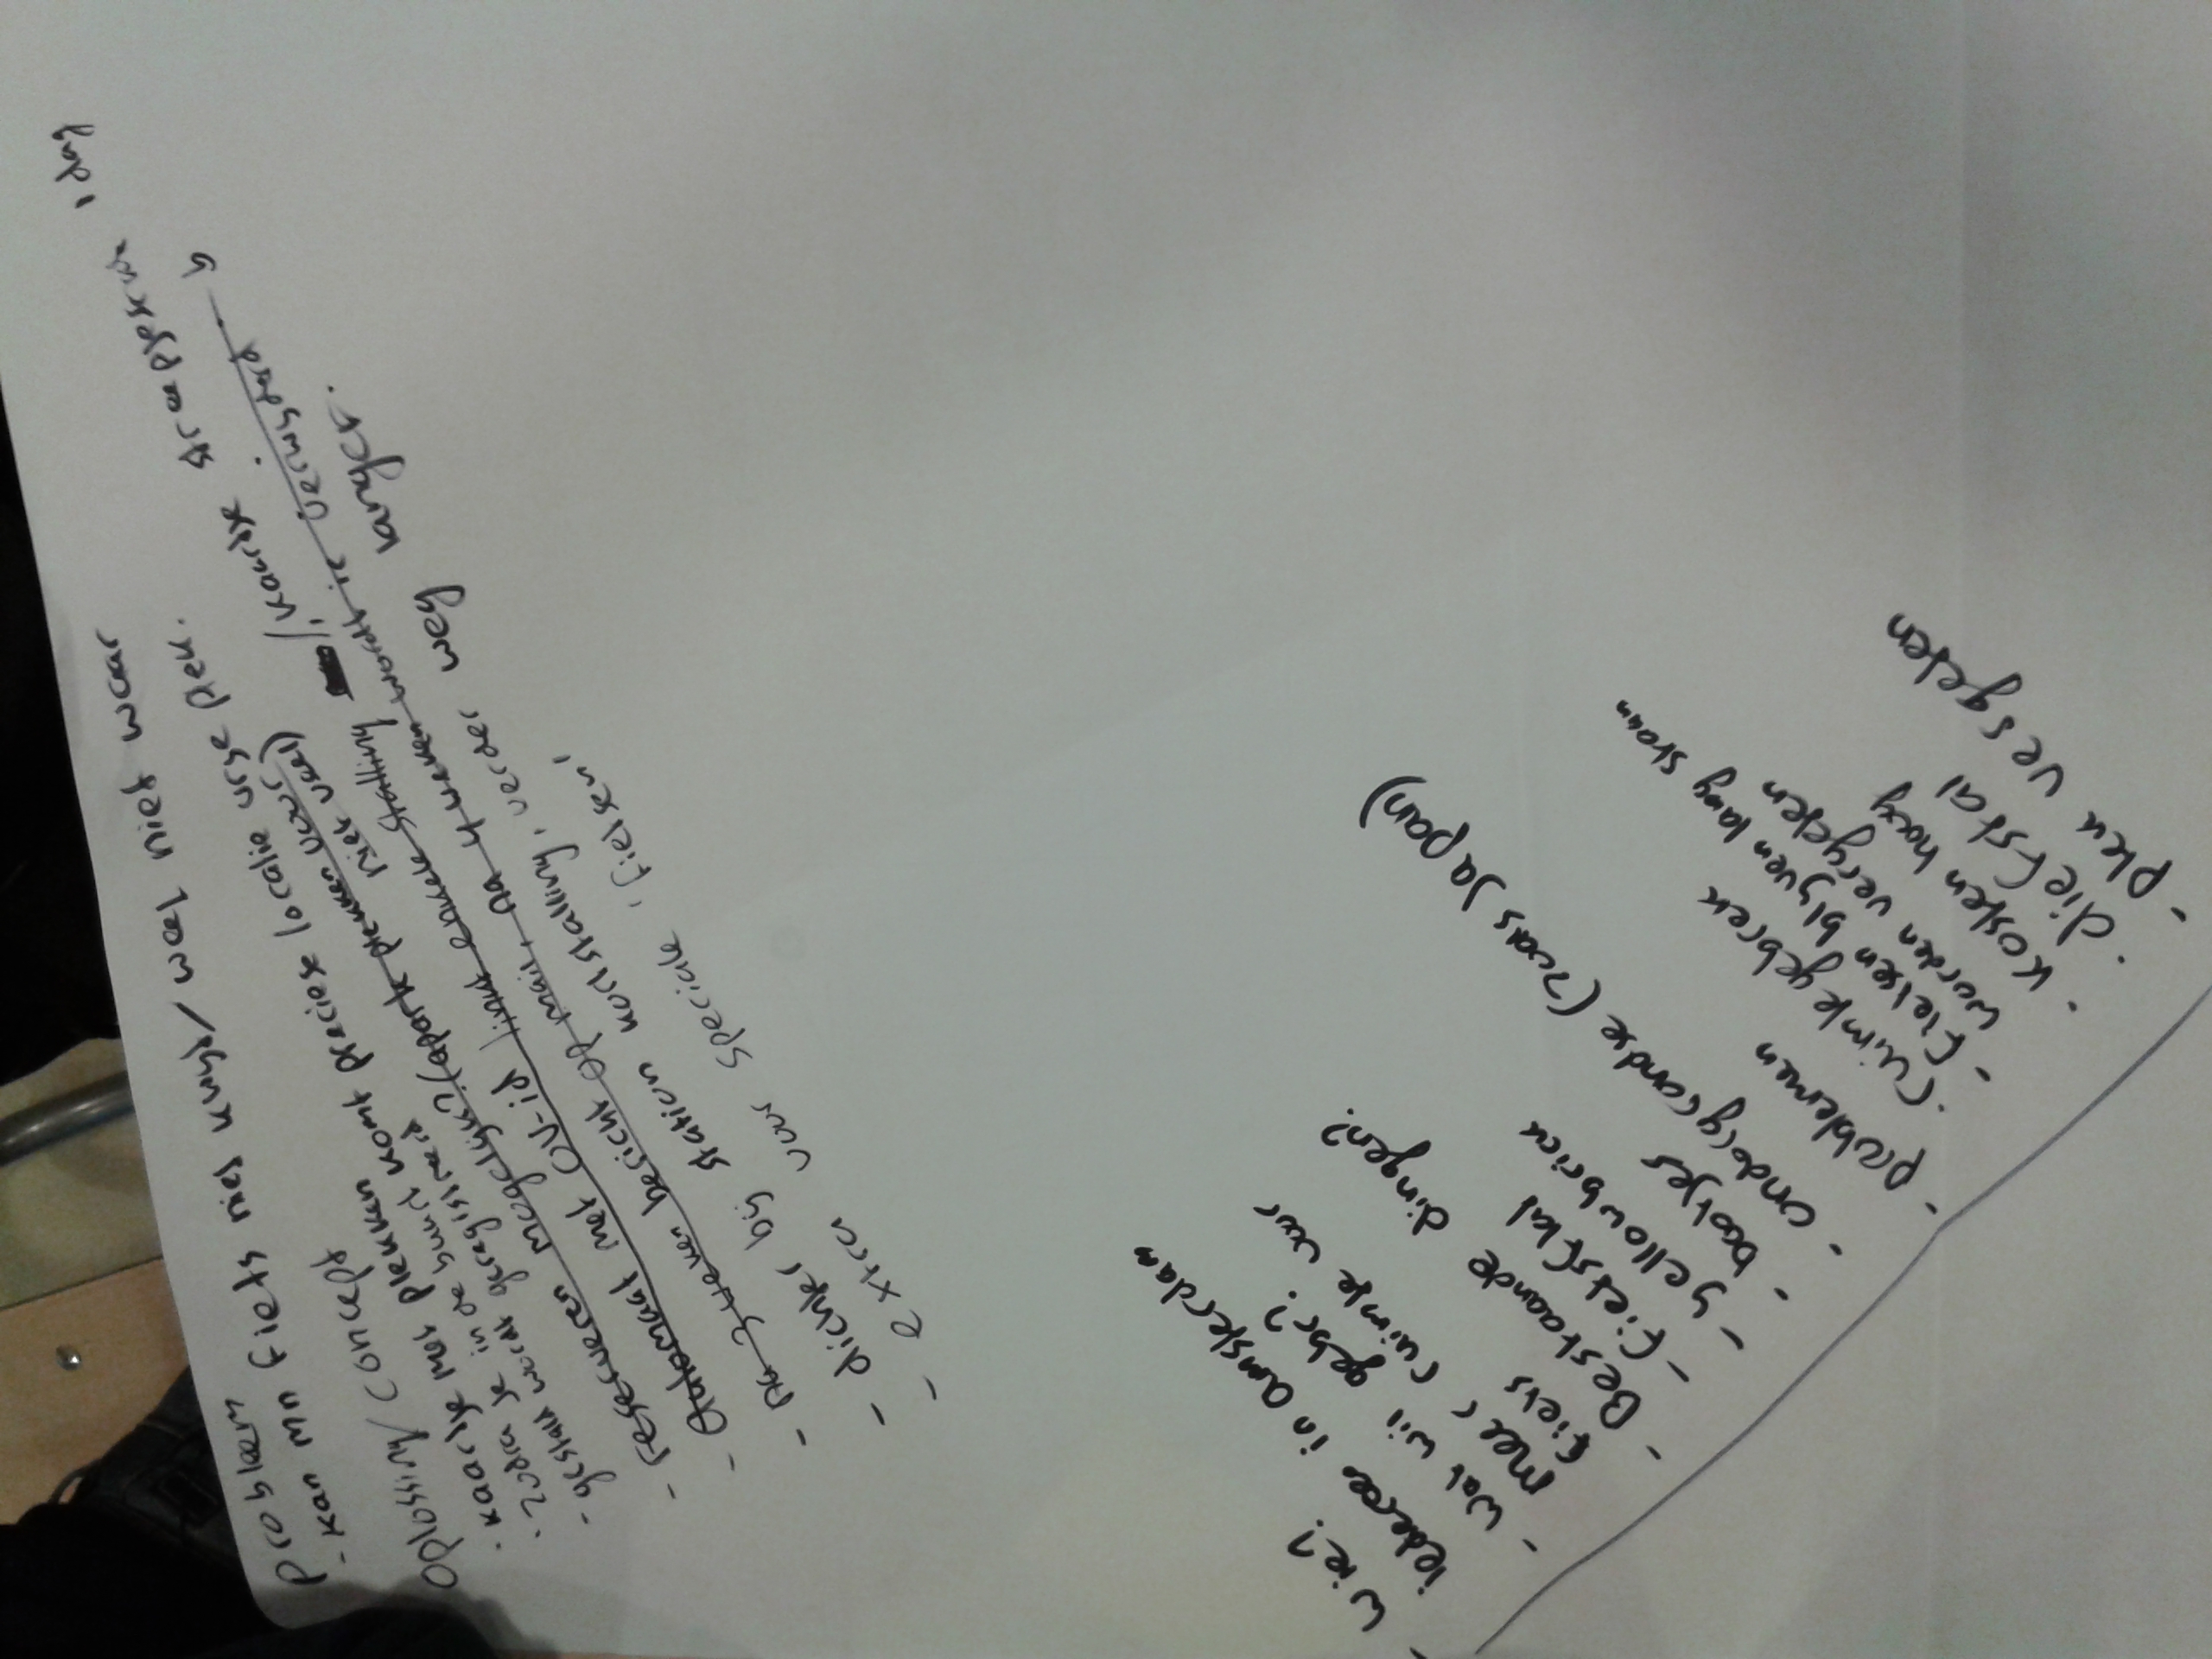 probleem
- kan mn fiets niet kwyt / weet niet waar
Oplossing / concept
- kaartje met plekken
- zodra je in de buurt komt precieze locatie vrije plek.
- gestald wordt geregistreerd
- reserveren mogelyk? (aparte plekken voor
niet veel)
- Automaat met OV-id linkt enkele stalling / kaartje streepjescode 1 dag
- na 3 weken bericht op mail, na 4 weken wordt ie verwyderd b
- dichter bij station kortstalling, verder weg langer.
- extra voor speciale 'fietsen'
- Wie?
iedereen in Amsterdam
- Wat wil gebr?
Meer ruimte voor
fiets
- Bestaande dingen?
- fietsflat
- yellowbrick
- bootjes
- ondergrondse (zoals Japan)
- problemen
- ruimtegebrek
- fietsen blyven lang staan
worden vergeten
- kosten hoog
- diefstal
- plek vergeten